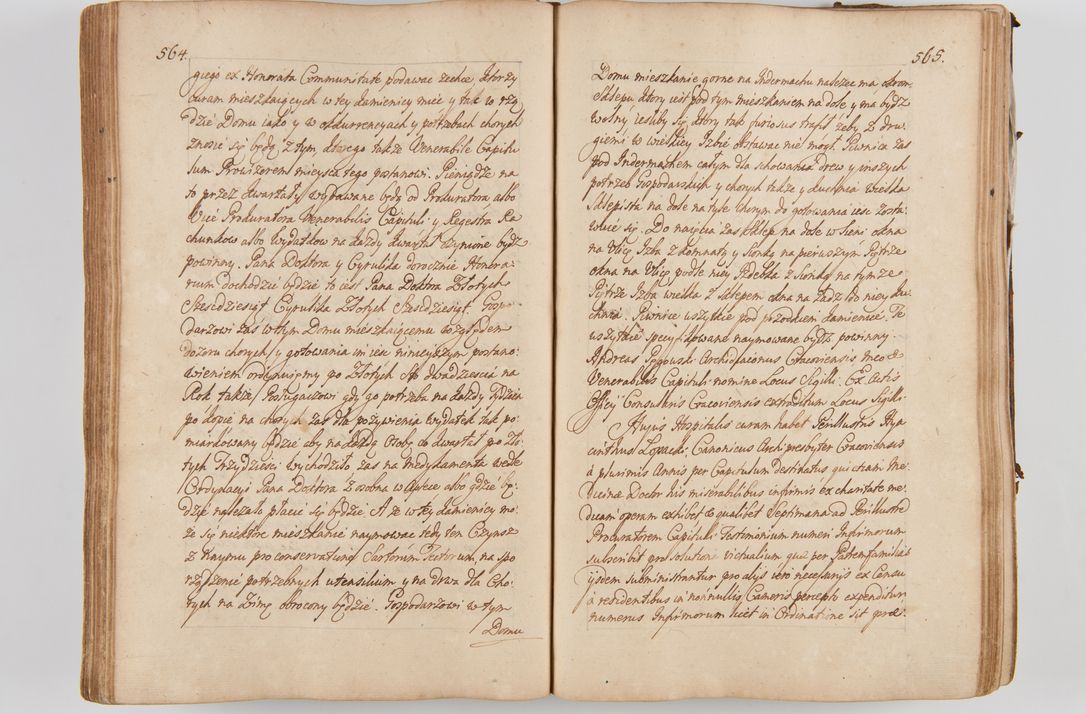 564.
giego ex Honorata Communitate podawac zechce którzy
curam mieszkaiących w tey kamienicy mieć y tak w rzą
dzie Domu iako y w okkurrencyach y potrzebach chorych
znosić się będą z tym, ktorego także Venerabile Capitu
lum Prowizorem mieysca tego postanowi. Pieniądze na
to przez kwartały wydawane będą od Prokuratora albo
Vice Prokuratora Venerabilis Capituli y Regestra Ra
chunkow albo Wydatkow na każdy kwartał czynione bydź
powinny. Pana Doktora y Cyrulika dorocznie Honora-
rium dochodzić będzie to iest Pana Doktora Złotych
Szescdziesiąt Cyrulika Złotych Szescdziesiąt. Gospo
darzowi zas w tym Domu mieszkaiącemu względem
dozoru chorych y gotowania im ieść ninieyszym postano-
wieniem ordynuiemy po Złotych Sto dwadziescia na
Rok także Posługaczowi gdy go potrzeba na każdy Tydzień
po kopie na chorych zas dla pożywienia wydatek tak po
miarkowany będzie aby na każdą Osobę co kwartał po Zło
tych Trzydziesci wychodziło zas na Medykamenta wedle
Ordynacyi Pana Doktora z osobna w Aptece albo gdzie bę-
dzie należało płacić się będzie. A że w tey kamienicy mo
że się niektóre mieszkanie naymowac tedy ten Czynsz
z Knysmu pro conservatione Sartorum Tectorum, na spo
rządzenie potrzebnych utensilium y na drwa dla Cho-
rych na Zimę obrocony będzie. Gospodarzowi w tym
Domu
565.
Domu mieszkanie gorne na Indermachu należec ma okrom
Sklepu ktory iest pod tym mieszkaniem na dole y ma bydz
wolny iesliby się ktory tak furiosus trafił żeby z dru-
giemi w wielkiey Izbie zostawac nie mogł. Piwnica zas
pod Indermachem całym dla schowania drew y inszych
potrzeb Gospodarskich y chorych także y kuchnia wielka
Sklepista na dole na tyle chorym do gotowania iesc zosta-
wuie się. Do naięcia zas Sklep na dole w Sieni okna
na Ulicę Izba z komnaty y Sionką na pierwszym Piętrze
okna na Ulicę podle niey Izdebka z Sionką na tymże
Piętrze Izba wielka z Sklepem okna na zadz do niey ku
chnia. Piwnice wszytkie pod przodkiem kamienice. Te
wszytkie specyfikowane naymowane bydź powinny.
Andreas Tegowski Archidiaconus Cracoviensis meo &
Venerabilis Capituli nomine Locus Sigilli. Ex Actis
Officij Consularis Cracoviensis extraditum Locus Sigilli.
Hujus Hospitalis curam habet Perillustris Hya
cinthus Łopacki Canonicus Archipresbyter Cracoviensis
à plurimis Annis per Capitulum destinatus qui etiam Me-
dicinæ Doctor his miserabilibus infirmis ex charitate me-
dicam operam exhibet & qualibet Septimana ad Perillustre
Procuratorem Capituli Testimonium numeri Infirmorum
subscribit pro solutione victualium quæ per Patremfamilias
ijsdem subministrantur pro alijs vero necessarijs ex Censu
à residentibus in nonnullis Cameris percepto expenditur
numerus Infirmorum licet in Ordinatione sit præ-